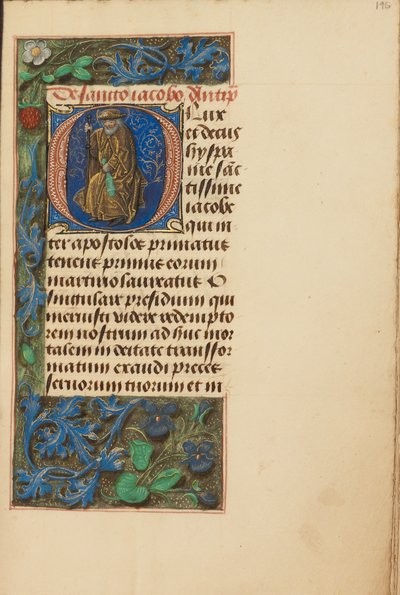 196
De sancto iacobo. Antiph
O lux
et decus
hyspa
nie sāc
tissime
iacobe
qui in
ter apostolos primatus
tenens primus eorum
martirio laureatus O
singulare presidium qui
meruisti videre redempto
rem nostrum ad huc mor
talem in deitate transfor
matum exaudi preces
seruorum tuorum et in